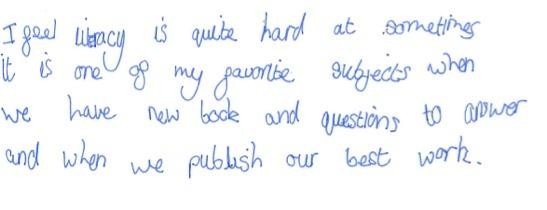 I feel literacy is quite hard at sometimes
it is one of my favorite subjects when
we have new book and questions to answer
and when we publish our best work.